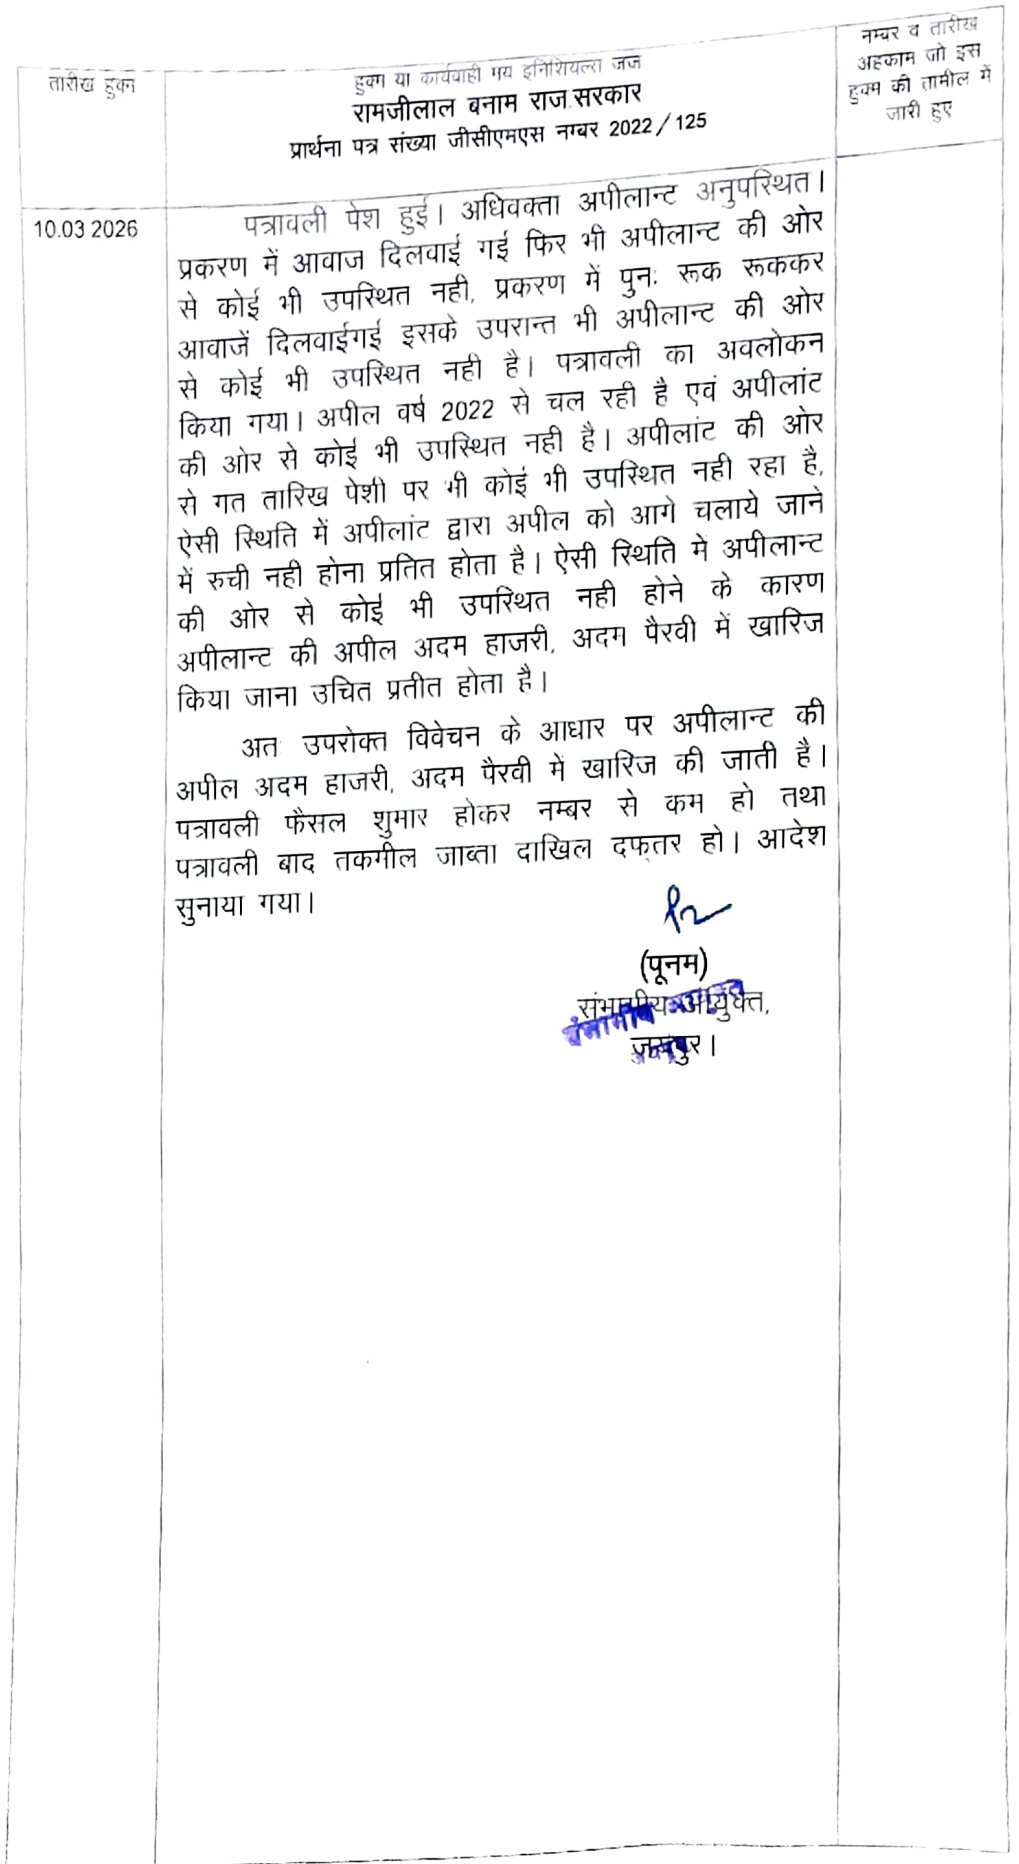 तारीख हुक्म
हुक्म या कार्यवाही मय इनिशियल्स जज
रामजीलाल बनाम राज.सरकार
प्रार्थना पत्र संख्या जीसीएमएस नम्बर 2022/125
नम्बर व तारीख
अहकाम जो इस
हुक्म की तामील में
जारी हुए
10.03.2026
पत्रावली पेश हुई। अधिवक्ता अपीलान्ट अनुपस्थित।
प्रकरण में आवाज दिलवाई गई फिर भी अपीलान्ट की ओर
से कोई भी उपस्थित नही, प्रकरण में पुनः रूक रूककर
आवाजें दिलवाईगई इसके उपरान्त भी अपीलान्ट की ओर
से कोई भी उपस्थित नही है। पत्रावली का अवलोकन
किया गया। अपील वर्ष 2022 से चल रही है एवं अपीलांट
की ओर से कोई भी उपस्थित नही है। अपीलांट की ओर
से गत तारिख पेशी पर भी कोई भी उपस्थित नही रहा है,
ऐसी स्थिति में अपीलांट द्वारा अपील को आगे चलाये जाने
में रुची नही होना प्रतित होता है। ऐसी स्थिति में अपीलान्ट
की ओर से कोई भी उपस्थित नही होने के कारण
अपीलान्ट की अपील अदम हाजरी, अदम पैरवी में खारिज
किया जाना उचित प्रतीत होता है।
अत उपरोक्त विवेचन के आधार पर अपीलान्ट की
अपील अदम हाजरी, अदम पैरवी में खारिज की जाती है।
पत्रावली फैसल शुमार होकर नम्बर से कम हो तथा
पत्रावली बाद तकमील जाब्ता दाखिल दफ्तर हो। आदेश
सुनाया गया।
(पूनम)
संभागीय आयुक्त,
जयपुर।